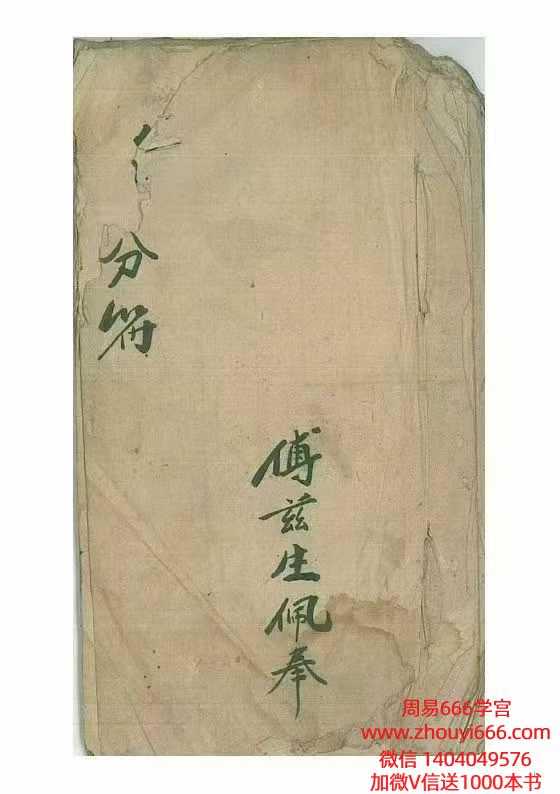 分符
傅兹生佩奉
周易666学宫
www.zhouyi666.com
微信 1404049576
加微V信送1000本书